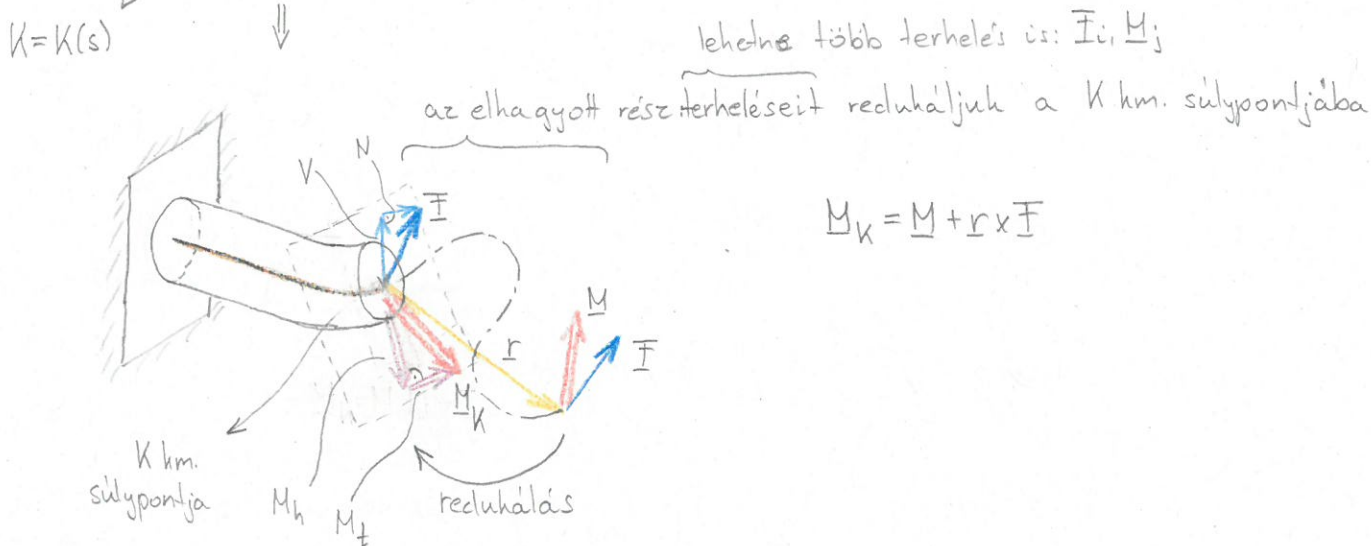 K=K(s)
lehetne több terhelés is: F̲i, M̲j
az elhagyott rész terheléseit redukáljuk a K km. súlypontjába
N
V
F̲
M̲K = M̲ + r̲ x F̲
M̲
r̲
F̲
M̲K
K km.
súlypontja
Mh
Mt
redukálás